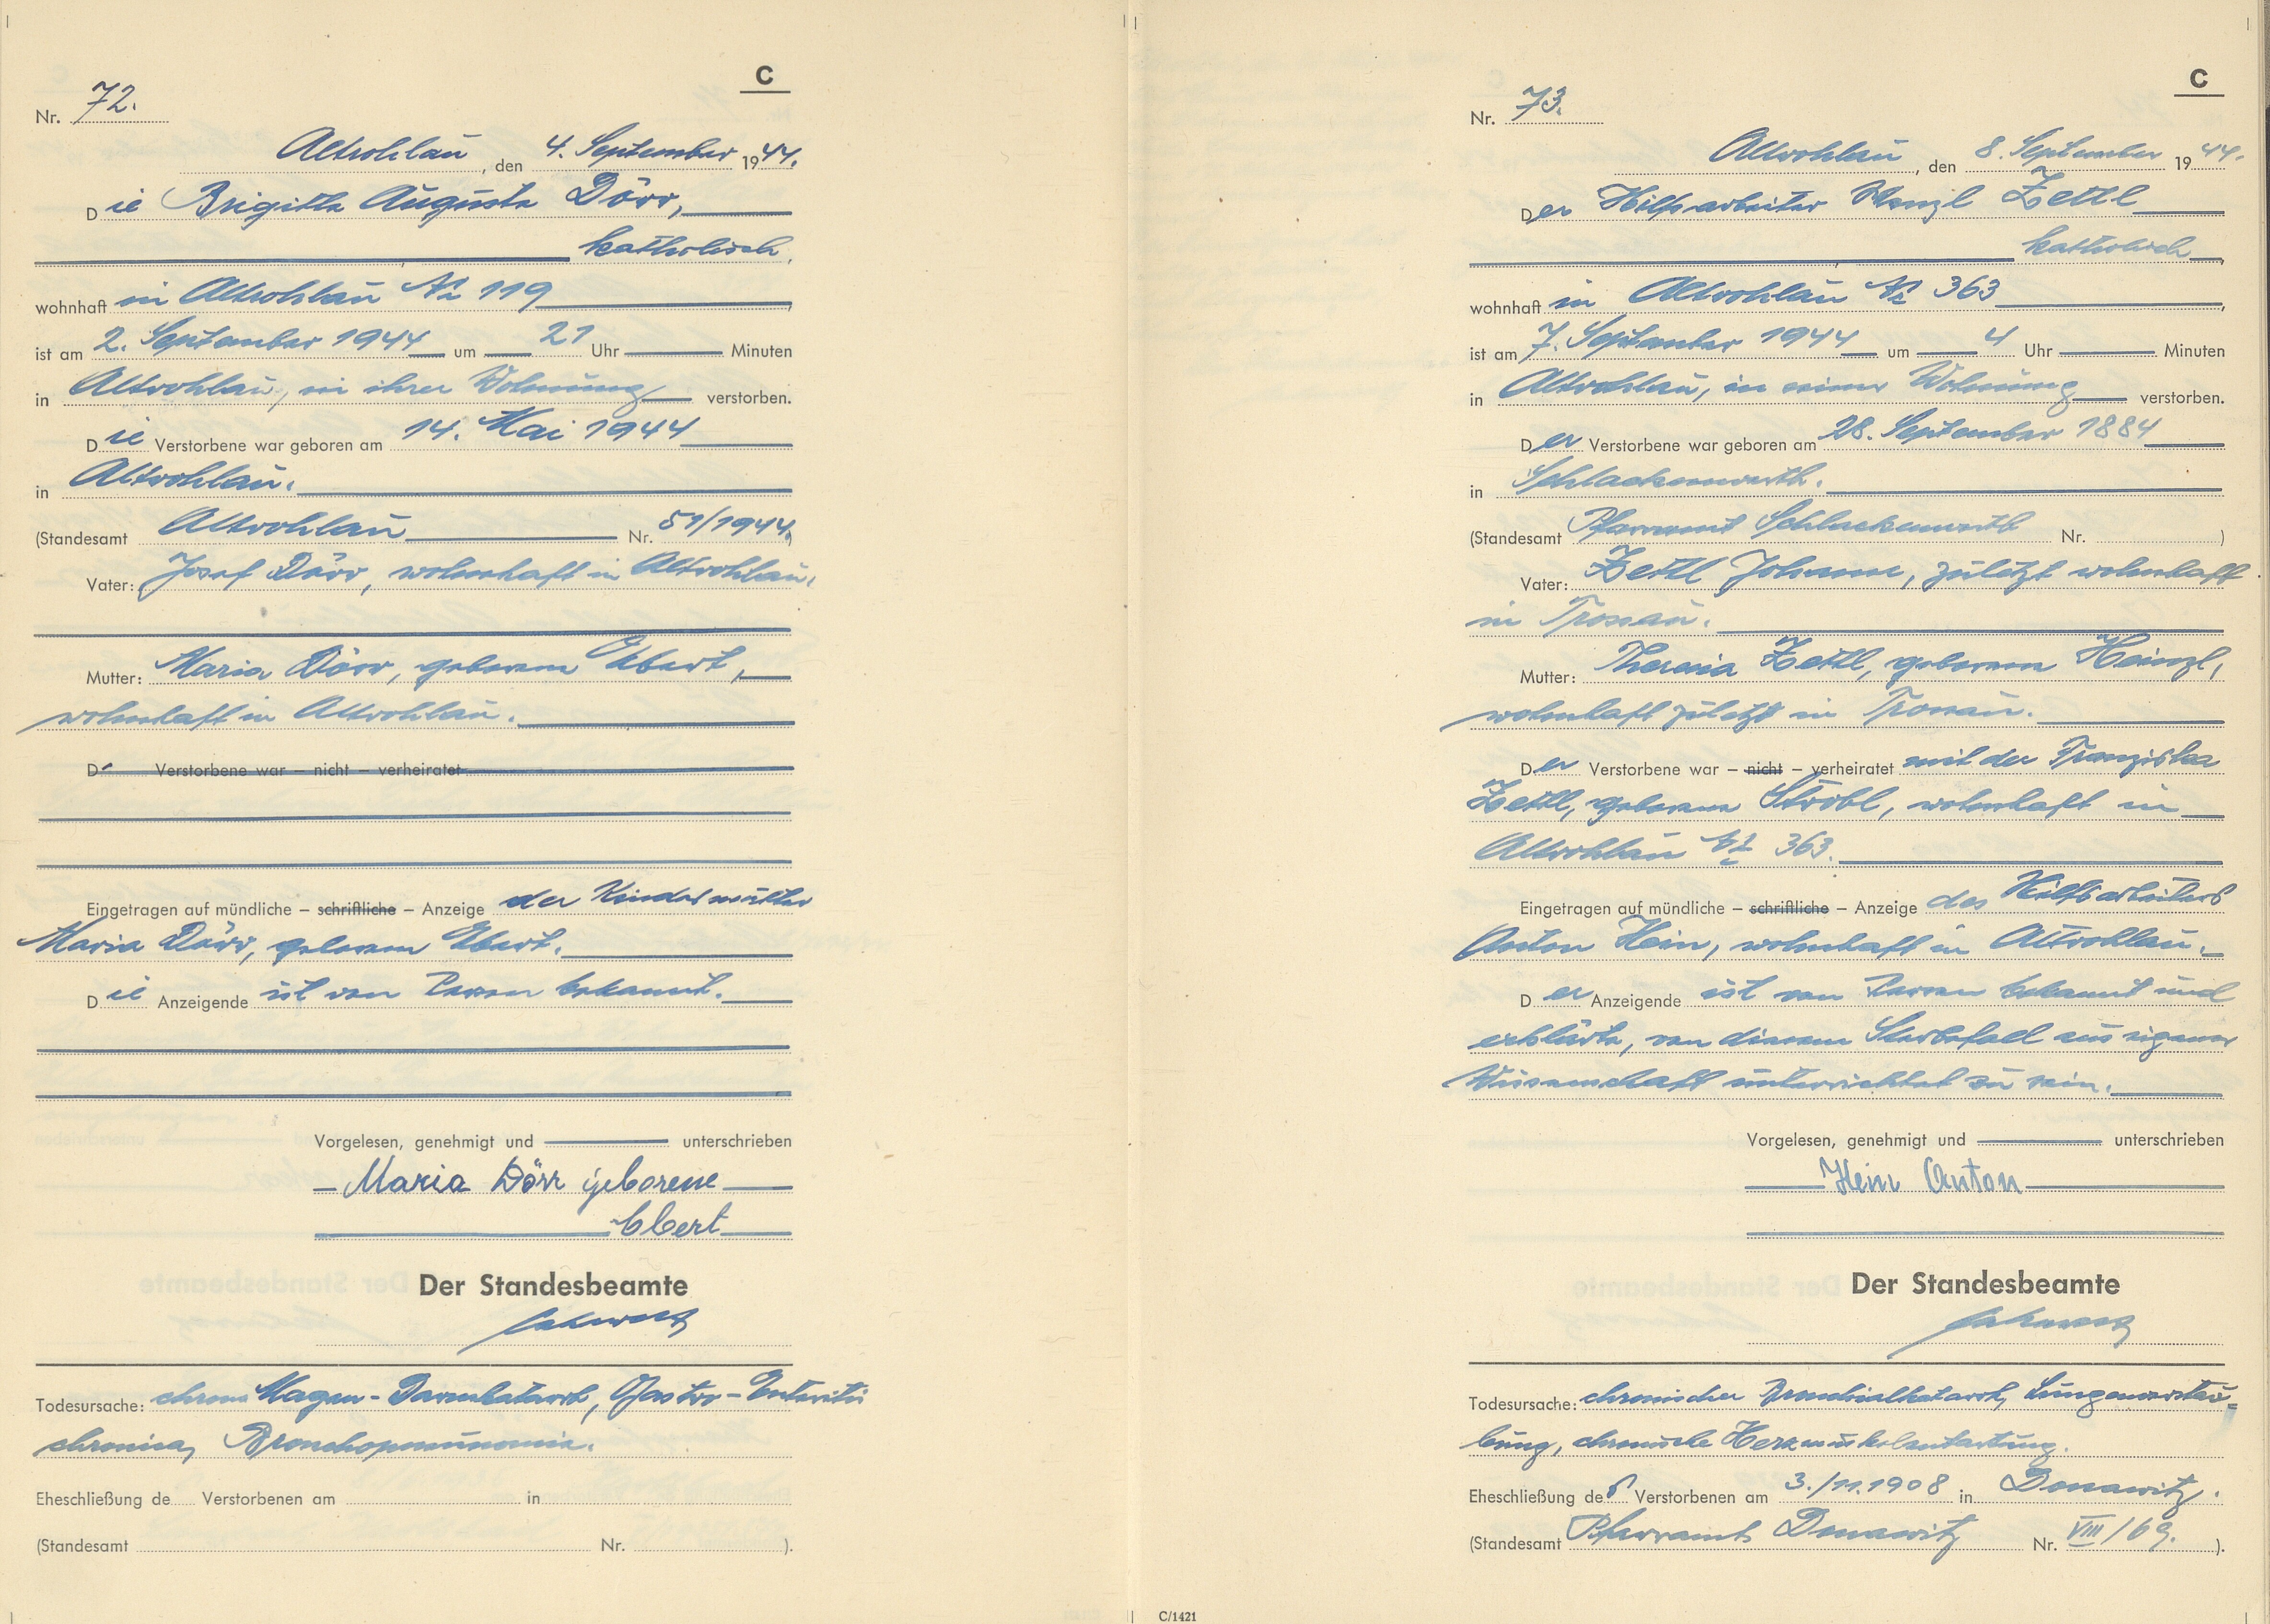 C
Nr. 72.
Altrohlau, den 4. September 1944.
Die Brigitta Augusta Dörr,
katholisch,
wohnhaft in Altrohlau No 119
ist am 2. September 1944 um 21 Uhr Minuten
in Altrohlau, in ihrer Wohnung verstorben.
Die Verstorbene war geboren am 14. Mai 1944
in Altrohlau.
(Standesamt Altrohlau Nr. 51/1944.)
Vater: Josef Dörr, wohnhaft in Altrohlau.
Mutter: Maria Dörr, geborene Ebert,
wohnhaft in Altrohlau.
D Verstorbene war – nicht – verheiratet
Eingetragen auf mündliche – schriftliche – Anzeige der Kindesmutter
Maria Dörr, geborene Ebert.
Die Anzeigende ist von Person bekannt.
Vorgelesen, genehmigt und unterschrieben
Maria Dörr geborene
Ebert
Der Standesbeamte
Todesursache: chron. Magen-Darmkatarrh, Gastro-Enteritis
chronica, Bronchopneumonia.
Eheschließung de Verstorbenen am in
(Standesamt Nr. ).
C
Nr. 73.
Altrohlau, den 8. September 1944.
Der Hilfsarbeiter Wenzl Zettl
katholisch,
wohnhaft in Altrohlau No 363,
ist am 7. September 1944 um 4 Uhr Minuten
in Altrohlau, in seiner Wohnung verstorben.
Der Verstorbene war geboren am 28. September 1884
in Schlackenwerth.
(Standesamt Pfarramt Schlackenwerth Nr. )
Vater: Zettl Johann, zuletzt wohnhaft
in Trossau.
Mutter: Theresia Zettl, geborene Heinzl,
wohnhaft zuletzt in Trossau.
Der Verstorbene war – nicht – verheiratet mit der Franziska
Zettl, geborene Ströbl, wohnhaft in
Altrohlau No 363.
Eingetragen auf mündliche – schriftliche – Anzeige des Hilfsarbeiters
Anton Hein, wohnhaft in Altrohlau.
Der Anzeigende ist von Person bekannt und
erklärte, von diesem Sterbefall aus eigener
Wissenschaft unterrichtet zu sein.
Vorgelesen, genehmigt und unterschrieben
Hein Anton
Der Standesbeamte
Todesursache: chronischer Bronchialkatarrh, Lungenerstau-
bung, chronische Herzmuskelentartung.
Eheschließung des Verstorbenen am 3./11.1908 in Donawitz.
(Standesamt Pfarramt Donawitz Nr. VIII/69.).
C/1421